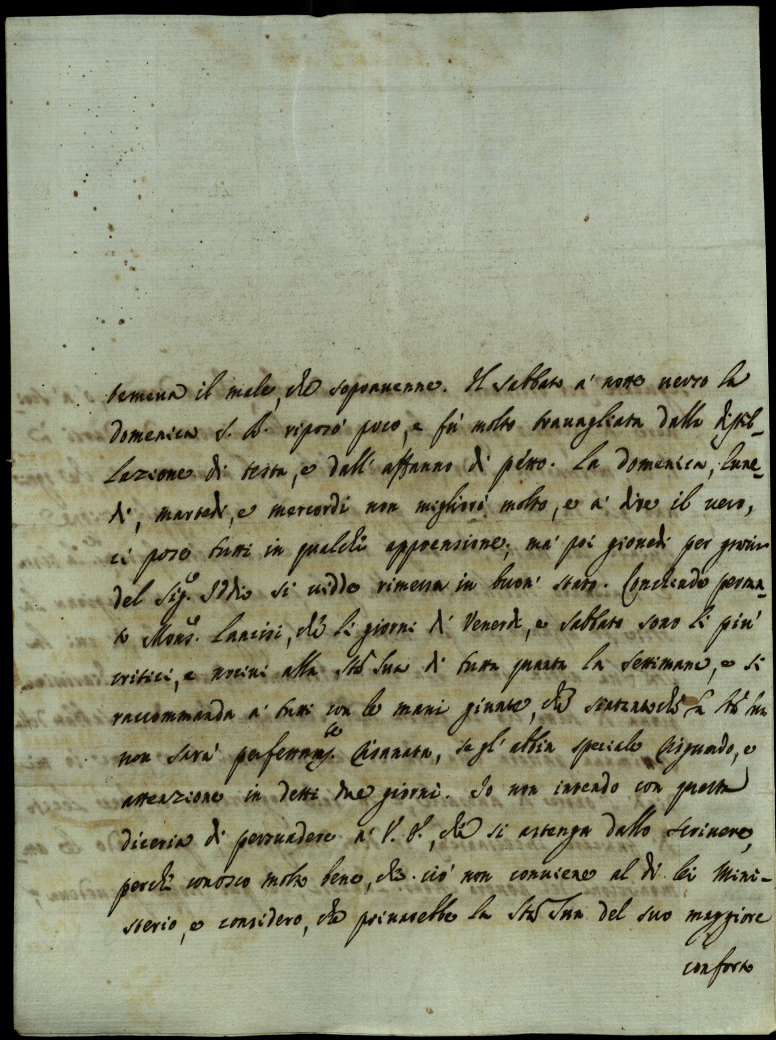 temeua il male, che soprauenne. Il Sabbato à notte uerso la
Domenica S. B. riposò poco, e fù molto trauagliata dalla distil-
lazione di testa, e dall'affanno di petto. La Domenica, lune-
dì, martedì, e mercordì non migliorò molto, e à dire il uero,
ci pose tutti in qualche apprensione; mà poi giouedì per grazia
del Sig.re Iddio si uidde rimessa in buon' stato. Conclude
Mons.r Lancisi, che li giorni di Venerdì, e Sabbato sono li più
critici, e nociui alla Stà Sua di tutta quanta la settimana, e si
raccommanda à tutti con le mani giunte, che la Stà Sua
non sarà perfettam.te risanata, se gl'abbia speciale riguardo, e
attenzione in detti due giorni. Io non intendo con questa
diceria di persuadere à V. S., che si astenga dallo scriuere,
perche conosco molto bene, che ciò non conuiene al di lei Mini-
sterio, e considero, che priuarebbe la Stà Sua del suo maggiore
conforto